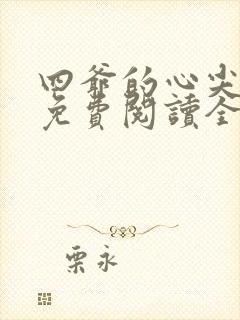 四爺的心尖
免費閱讀全
栗永